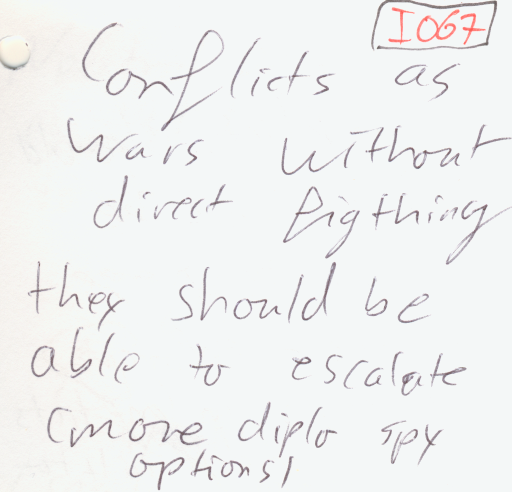 I067
Conflicts as
wars without
direct figthing
they should be
able to escalate
(more diplo spy
options)